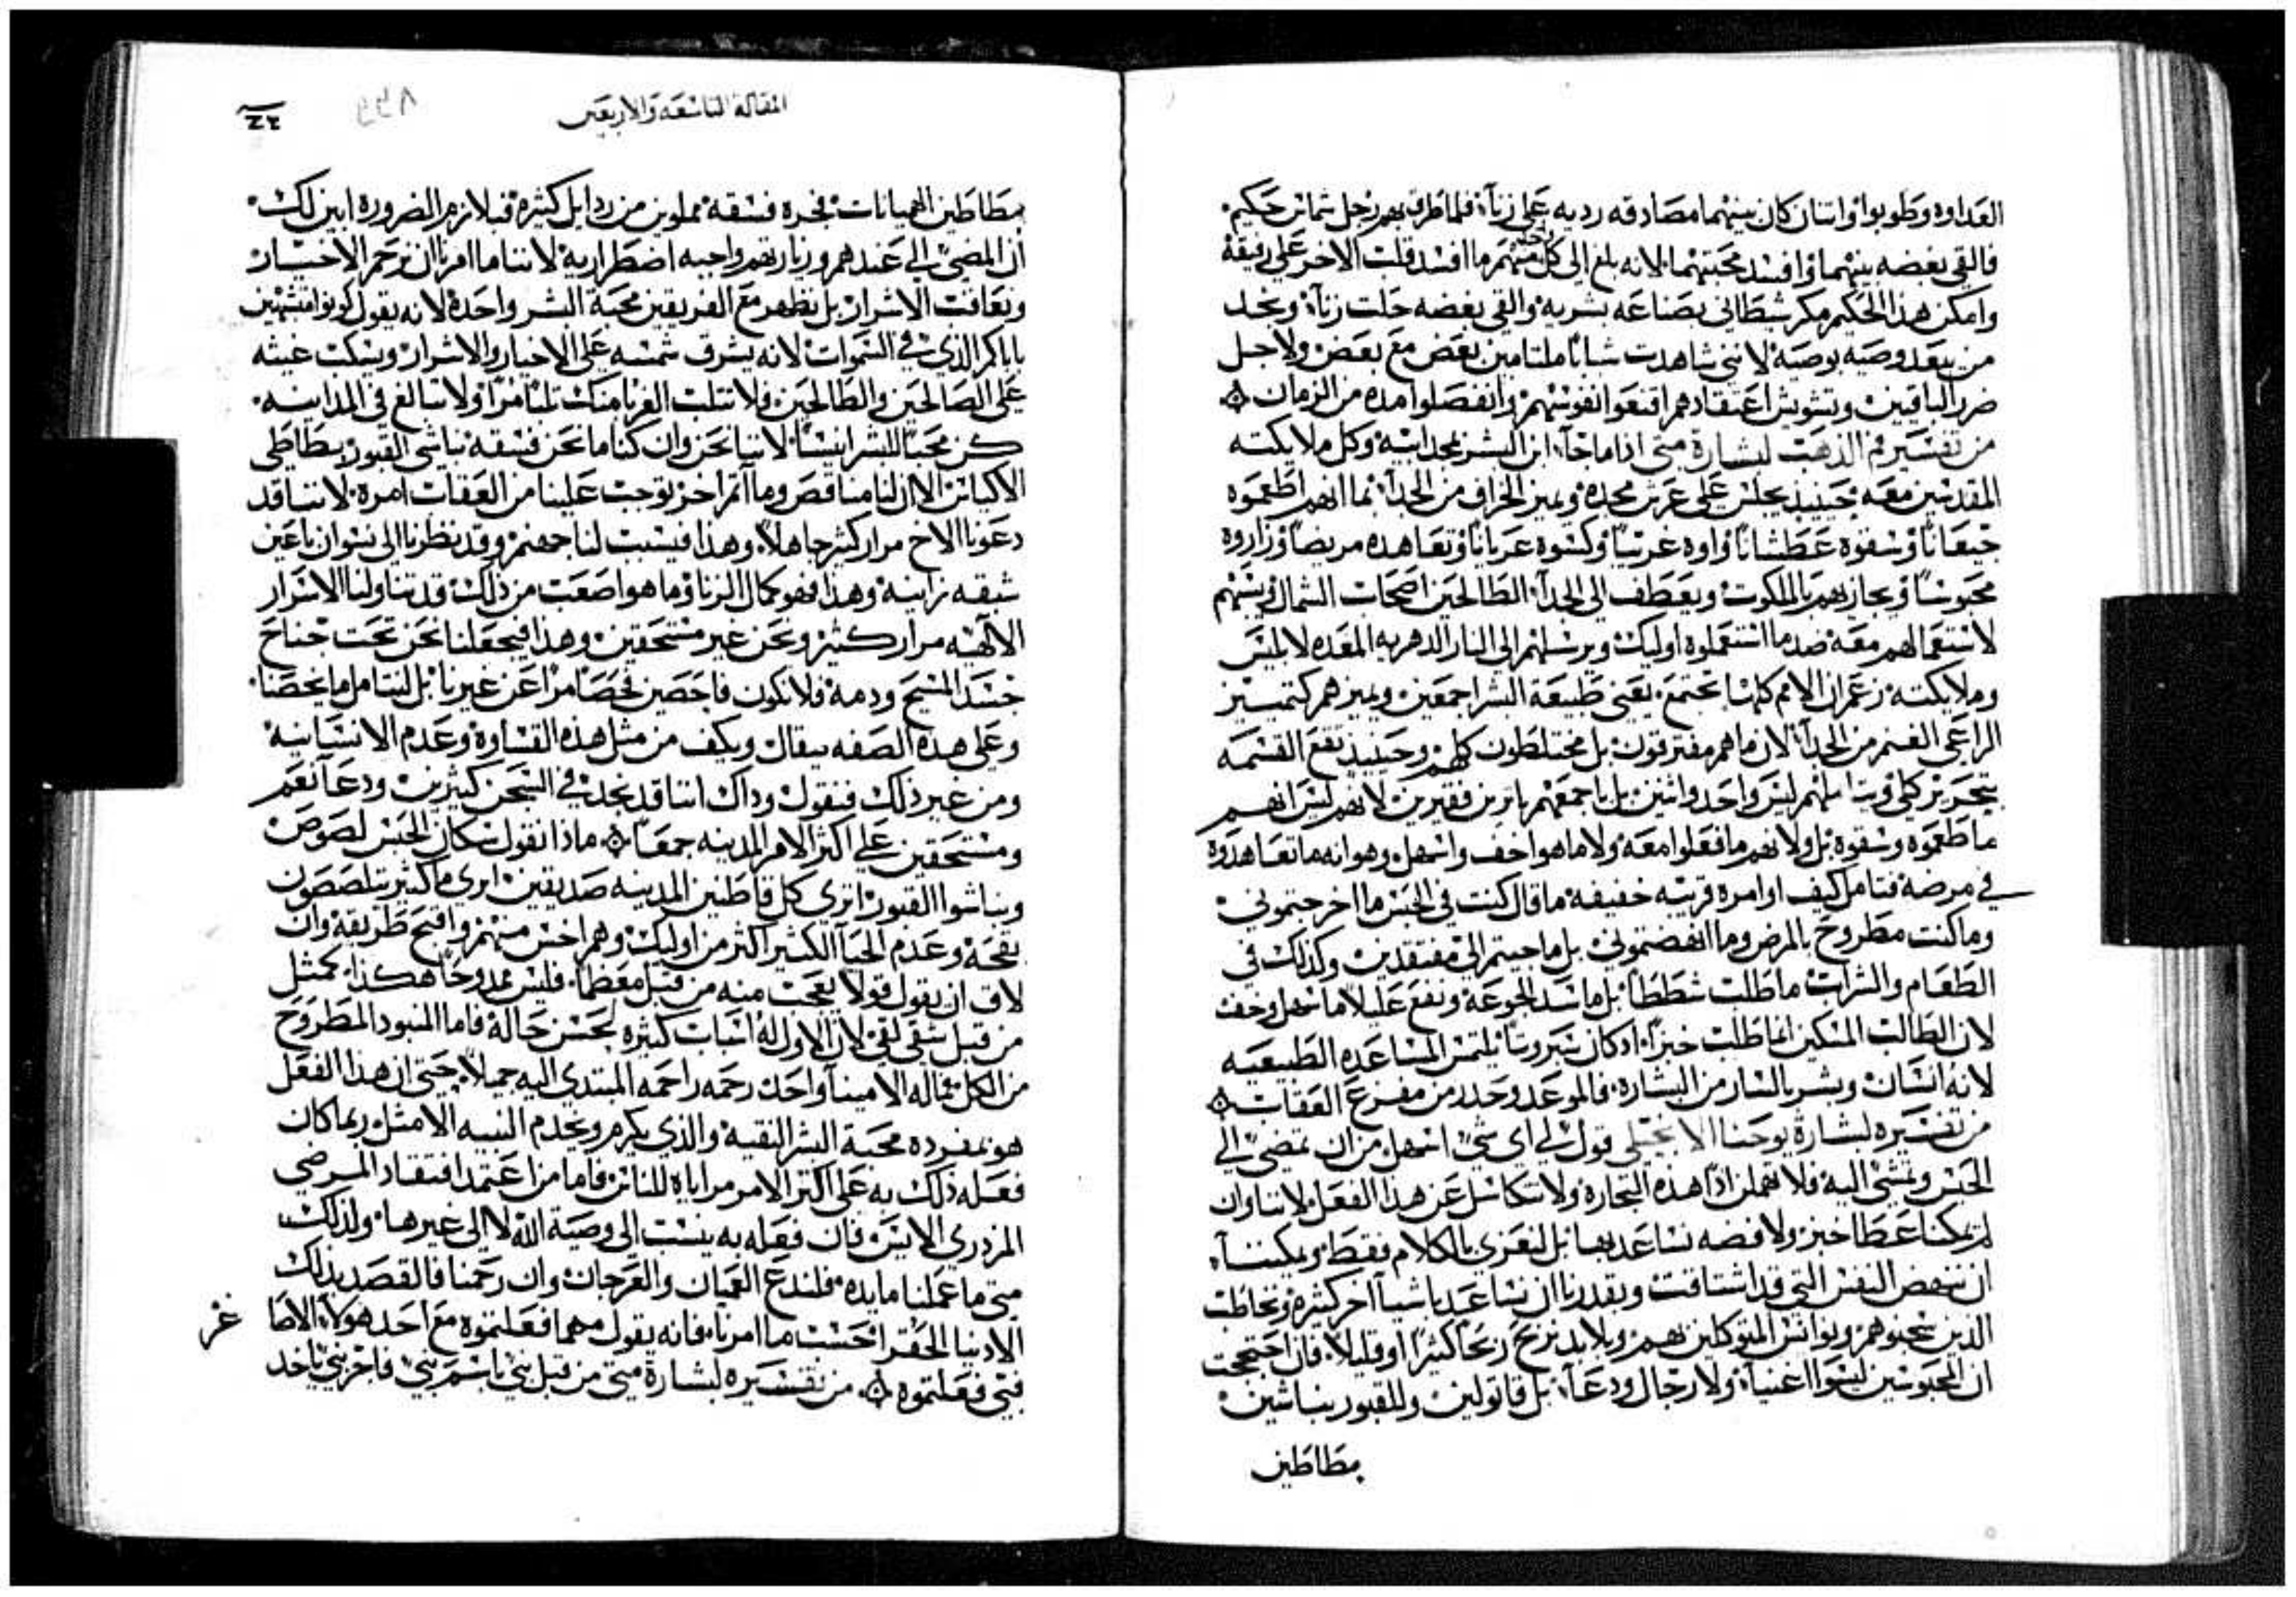 العداوه وطوبوا واتنان كان بينهما مصادقه رديه على زناء فلما طرف بهم رجل شماس حكيم
فالقى بغضه بينهما وافسد محبتهما لانه بلغ الى كل واحد منهم ما افسد قلب الاخر على رفيقه
وامكن هذا الحكيم مكر شيطاني بصناعه بشريه والقى بغضه حلت زناء ونجد
من بعد وصيه بوصيه لانني شاهدت شبانا ملتامين بعض مع بعض ولاجل
ضرر الباقين وتشويش اعتقادهم اقنعوا نفوسهم وانفصلوا مده من الزمان
من تفسير فم الذهب لبشارة متى اذا ما جاء ابن البشر بمجد ابيه وكل ملايكته
المقدسين معه حينيذ يجلس على عرش مجده ويميز الخراف من الجداء بما انهم اطعموه
جيعانا وسقوه عطشانا واووه غريبا وكسوه عريانا وتعاهده مريضا وزاروه
محبوسا ويجازيهم بالملكوت ويعطف الى الجداء الطالحين اصحاب الشمال
لاستعمالهم معه ضد ما استعملوه اوليك ويرسلهم الى النار الدهريه المعده لابليس
وملايكته زعم ان الامم كلها تجتمع يعني طبيعة البشر اجمعين ويميزهم كتمييز
الراعي الغنم من الجداء لان ما هم مفترقون بل مختلطون كلهم وحينيذ تقع القسمه
بتحرير كلي وتباينهم ليس واحد واثنين بل باجمعهم بارين فقيرين لانهم ليس انهم
ما طعموه وسقوه بل ولا نهم ما فعلوا معه ولا ما هو اخف واسهل وهو انه ما تعاهدوه
في مرضه فتامل كيف اوامره قريبه خفيفه ما قال كنت في الحبس ما اخرجتموني
وما كنت مطروح بالمرض وما انهضتموني بل ما جيتم الي مفتقدين وكذلك في
الطعام والشراب ما طلب شططا بل ما سد الجوعه ونفع عليلا ما سهل وخف
لان الطالب المسكين انما طلب خبزا اذ كان سبروتا يلتمس المساعده الطبيعيه
لانه انسان وبشر بالنار من البشاره فالموعد وحدد من مفزع العقاب
من تفسيره لبشارة يوحنا الانجيلي قول لي اي شي اسهل من ان تمضي الي
الحبس وتمشي اليه فلا تهملن اذا هذه التجاره ولا تتكاسل عن هذا الفعل لاننا وان
لم يمكنا عطا خبز ولا فضه نساعد بها بل لنعزي بالكلام فقط ويمكننا
ان ننهض النفس التي قد اشتاقت ويقدرنا ان نساعد باشيا اخر كثيره ونخاطب
الذين سجنوهم ونوانس المتوكلين بهم وبلا بد نربح ربحا كثيرا او قليلا فان احتججت
ان المحبوسين ليسوا اغنياء ولا رجال ودعاء بل قاتولين وللقبور نباشين
بطاطين
المقالة التاسعه والاربعين
بطاطين الهميانات فجره فسقه مملوين من رذايل كثيره قبلا زم الضرورة ابين لك
ان المضي الي عندهم وزيارتهم واجبه اضطراريه لاننا ما امرنا ان نرحم الاخيار
ونعاقب الاشرار بل نظهر مع الفريقين محبة البشر واحده لانه يقول كونوا متشبهين
باباكم الذي في السموات لانه يشرق شمسه على الاخيار والاشرار ويسكب غيثه
على الصالحين والطالحين فلا تثلب الغربا منك ثلبا مرا ولا تبالغ في المداينه
كن محبا للبشر انيسا لاننا نحن وان كنا ما نحن فسقه نباشي القبور بطاطي
الاكياس الا ان لنا مناقص وماثم اخر توجب علينا من العقاب امره لاننا قد
دعونا الاخ مرار كثير جاهلا وهذا فيسبب لنا جهنم وقد نظرنا الى نسوان باعين
شبقه زانيه وهذا فهو كمال الزنا وما هو اصعب من ذلك قد تناولنا الاسرار
الالهيه مرار كثيره ونحن غير مستحقين وهذا فيجعلنا نحن تحت جناح
جسد المسيح ودمه فلا نكون فاحصين فحصا مرا عن غيرنا بل لنتامل ما يخصنا
وعلى هذه الصفه يقال ويكف من مثل هذه القساوه وعدم الانسانيه
ومن غير ذلك فنقول وذاك اننا قد نجد في السجن كثيرين ودعاء نعم
ومستحقين على اكثر الامر المدينه جمعا ماذا نقول سكان الحبس لصوص
ونباشوا القبور اترى كل قاطنين المدينه صديقين ارى ما كثير يتلصصون
بقحه وعدم الحياء الكثير اكثر من اوليك وهم اخس منهم واقبح طريقه وان
لاق ان نقول قولا يعجب منه من قبل معظما فليس ممدوحا هكذا كمثل
من قبل شقي لقي لان الاول له اسباب كثيره لحسن حاله فاما المنبود المطروح
من الكل فماله الا ميناء واحد رحمه راحمه المبتدي اليه جميلا حتى ان هذا الفعل
هو بمفرده محبة البشر النقيه والذي يكرم ويخدم النبيه الامثل ربما كان
فعله ذلك به على اكثر الامر مراياه للناس فاما من اعتمد افتقاد المرضي
المزدري الايس فان فعله به ينسب الى وصية الله لا الى غيرها ولذلك
متى ما عملنا مايده فلندع العميان والعرجان وان رحمنا فالقصد بذلك
الادنيا الحقرا حسب ما امرنا فانه يقول مهما فعلتموه مع احد هولاء الاصا
غر
فبي فعلتموه من تفسيره لبشارة متى من قبل نبي باسم نبي فاجر نبي ياخد